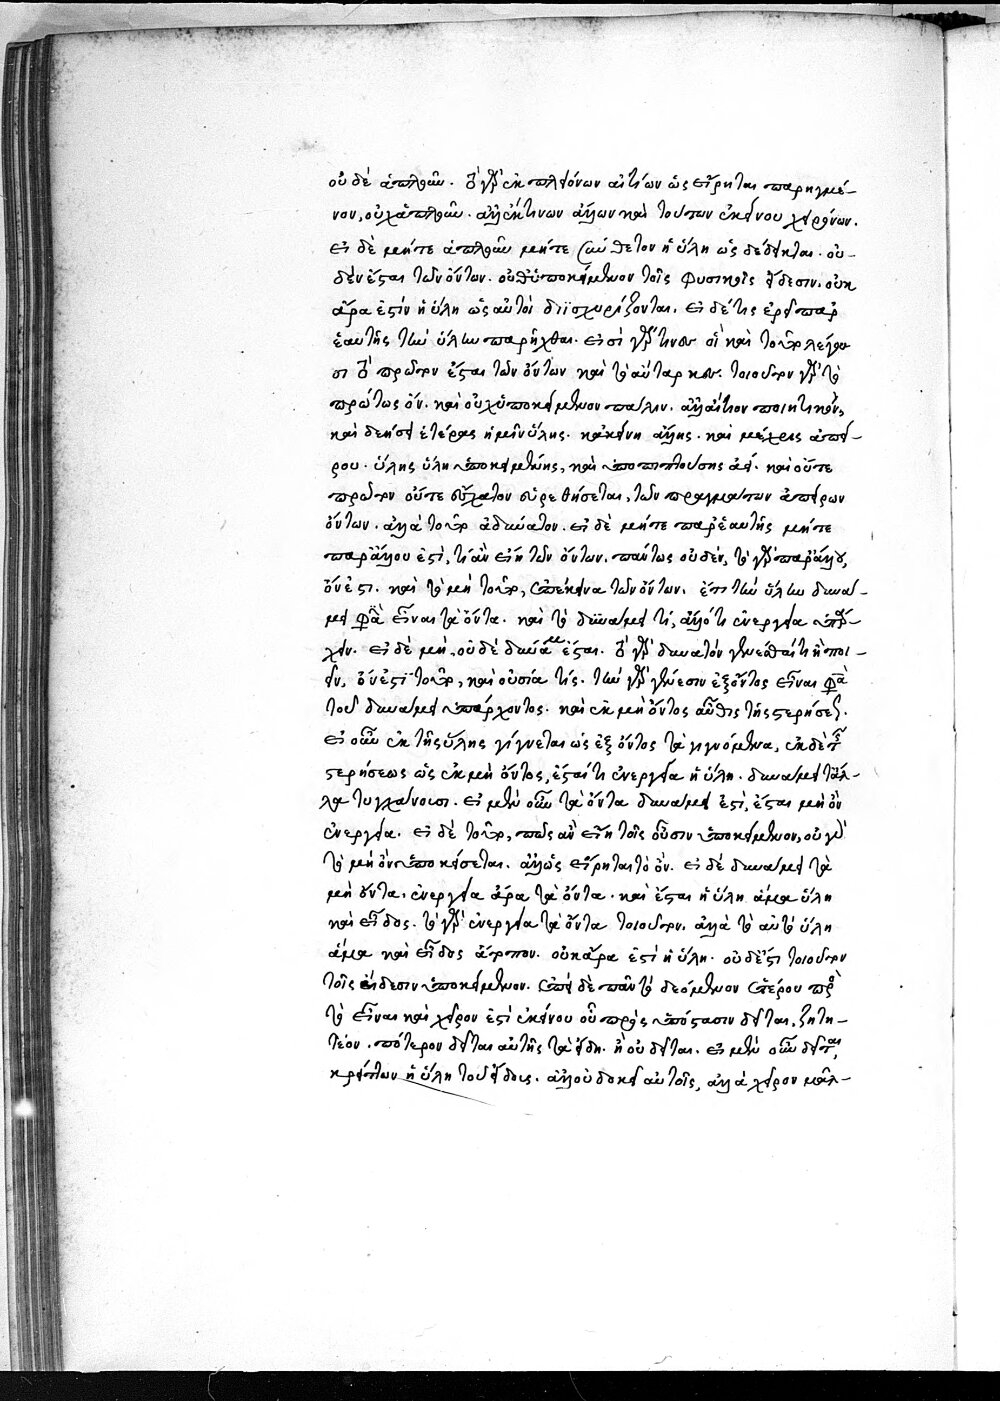 οὐδὲ ἁπλοῦν. τὸ γὰρ ἐκ πλειόνων αἰτίων ὡς εἴρηται παρηγμέ-
νον, οὐχ ἁπλοῦν. ἀλλ' ἐκ τινων ἄλλων καὶ τούτων ἐκείνου χειρόνων.
εἰ δὲ μήτε ἁπλοῦν μήτε σύνθετον ἡ ὕλη ὡς δέδεικται. οὐ-
δὲν ἔσται τῶν ὄντων. οὐθ' ὑποκείμενον τοῖς φυσικοῖς εἴδεσιν. οὐκ
ἄρα ἐστὶν ἡ ὕλη ὡς αὐτοὶ διϊσχυρίζονται. εἰ δέ τις ἐρεῖ παρ'
ἑαυτῆς τὴν ὕλην παρῆχθαι. εἰσὶ γάρ τινες οἳ καὶ τοῦτο λέγου-
σι τὸ πρῶτον ἔσται τῶν ὄντων καὶ τὸ αὔταρκες. τοιοῦτον γὰρ τὸ
πρώτως ὄν. καὶ οὐχ ὑποκείμενον πάλιν. ἀλλ' αἴτιον ποιητικὸν,
καὶ δεήσει ἑτέρας ἡμῖν ὕλης. κἀκείνη ἄλλης. καὶ μέχρις ἀπεί-
ρου. ὕλης ὕλη ὑποκειμένης, καὶ ὑποπιπτούσης ἀεί. καὶ οὔτε
πρῶτον οὔτε ἔσχατον εὑρεθήσεται, τῶν πραγμάτων ἀπείρων
ὄντων. ἀλλὰ τοῦτο ἀδύνατον. εἰ δὲ μήτε παρ' ἑαυτῆς μήτε
παρ' ἄλλου ἐστὶ, τί ἂν εἴη τῶν ὄντων. πάντως οὐδέν, τὸ γὰρ παρ' ἄλλου,
ὄν ἐστι. καὶ τὸ μὴ τοῦτο, ἐπέκεινα τῶν ὄντων. ἔτι τὴν ὕλην δυνά-
μει φασὶ εἶναι τὰ ὄντα. καὶ τὸ δυνάμει τί, ἄλλό τι ἐνεργείᾳ ὑπάρ-
χειν. εἰ δὲ μὴ, οὐδὲ δυνάμει ἔσται. τὸ γὰρ δυνατόν γενέσθαί τι ἢ ποι-
εῖν, ὄν ἐστι τοῦτο, καὶ οὐσία τίς. τὴν γὰρ γένεσιν ἐξ ὄντος εἶναι φασὶ
τοῦ δυνάμει ὑπάρχοντος. καὶ ἐκ μὴ ὄντος αὖθις τῆς στερήσεως.
εἰ οὖν ἐκ τῆς ὕλης γίγνεται ὡς ἐξ ὄντος τὰ γιγνόμενα, ἐκ δὲ τῆς
στερήσεως ὡς ἐκ μὴ ὄντος, ἔσται τι ἐνεργείᾳ ἡ ὕλη. δυνάμει τἆλ-
λα τυγχάνουσι. εἰ μὲν οὖν τὰ ὄντα δυνάμει ἐστὶ, ἔσται μὴ ὂν
ἐνεργείᾳ. εἰ δὲ τοῦτο, πῶς ἂν εἴη τοῖς οὖσιν ὑποκείμενον, οὐ γὰρ
τὸ μὴ ὂν ὑποκείσεται. ἀλλ' ὡς εἴρηται τὸ ὄν. εἰ δὲ δυνάμει τὰ
μὴ ὄντα, ἐνεργείᾳ ἄρα τὰ ὄντα. καὶ ἔσται ἡ ὕλη ἅμα ὕλη
καὶ εἶδος. τὸ γὰρ ἐνεργείᾳ τὰ ὄντα τοιοῦτον. ἀλλὰ τὸ αὐτὸ ὕλη
ἅμα καὶ εἶδος ἄτοπον. οὐκ ἄρα ἐστὶ ἡ ὕλη. οὐδ' ἔστι τοιοῦτον
τοῖς εἴδεσιν ὑποκείμενον. ἐπεὶ δὲ πᾶν τὸ δεόμενον ἑτέρου πρὸς
τὸ εἶναι καὶ χεῖρον ἐστὶ ἐκείνου οὗ πρὸς ὑπόστασιν δεῖται, ζητη-
τέον. πότερον δεῖται αὐτῆς τὰ εἴδη. ἢ οὐ δεῖται. εἰ μὲν οὖν δεῖται,
κρείττων ἡ ὕλη τοῦ εἴδους. ἀλλ' οὐ δοκεῖ αὐτοῖς, ἀλλὰ χεῖρον μᾶλ-